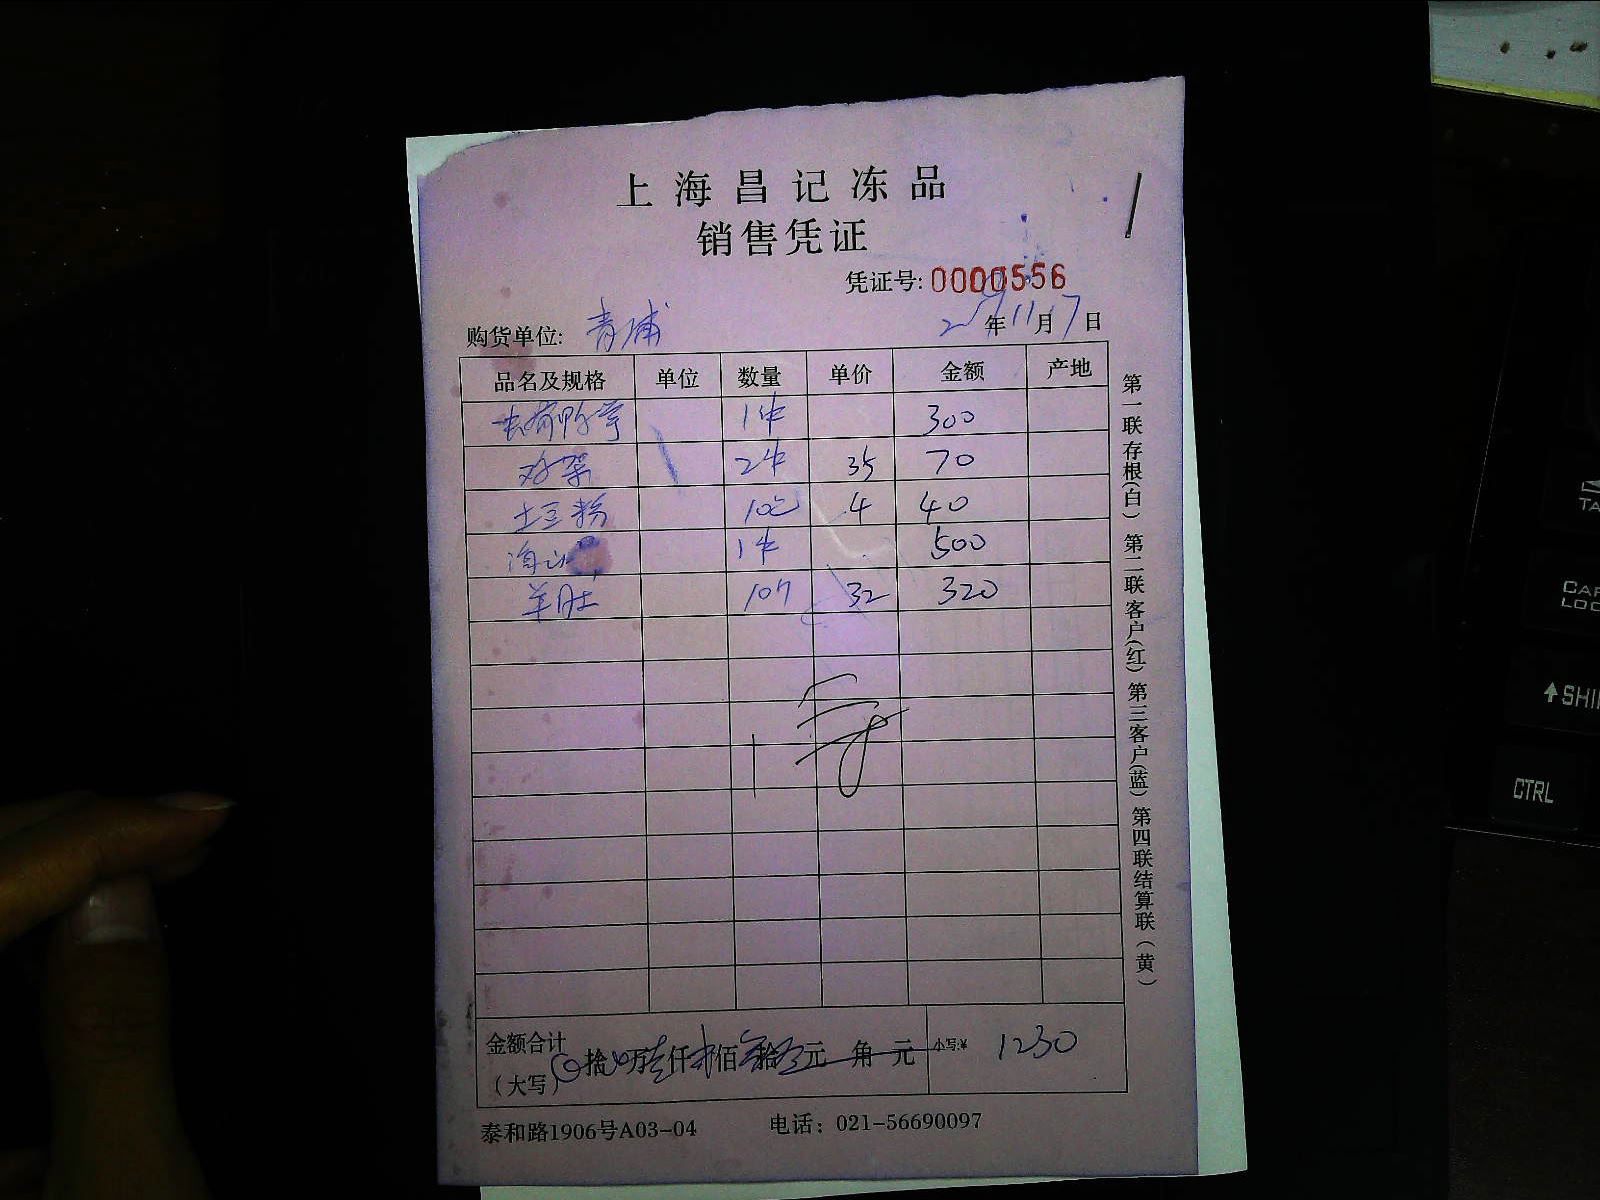 上海昌记冻品
销售凭证
凭证号: 0000556
购货单位: 青浦 年11月17日
品名及规格 单位 数量 单价 金额 产地
去骨鸭掌 1件 300
鸡架 2件 35 70
土豆粉 10包 4 40
1件 500
羊肚 10斤 32 320
金额合计
(大写) 拾 万壹仟贰佰叁拾 元 角 元 小写:¥ 1230
泰和路1906号A03-04 电话: 021-56690097
第一联存根(白) 第二联客户(红) 第三客户(蓝) 第四联结算联(黄)
TA
CAP
LOC
SHI
CTRL